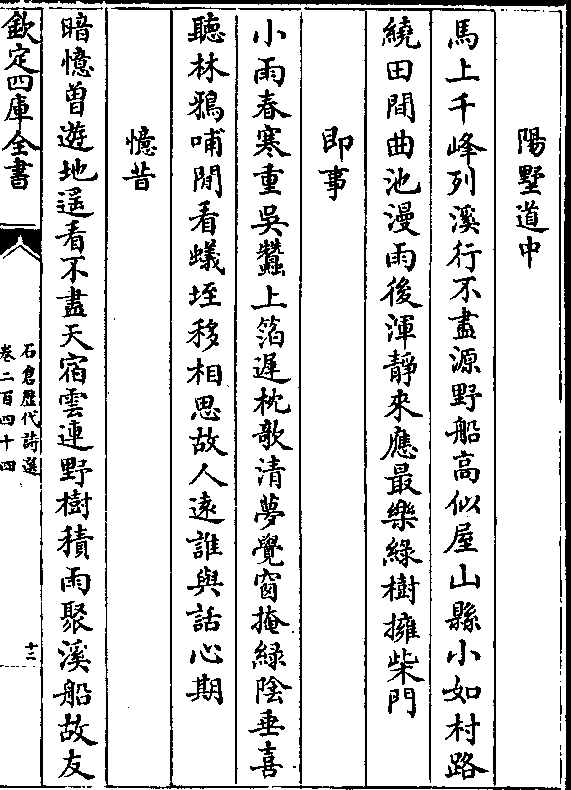 陽墅道中
馬上千峰列溪行不盡源野船髙似屋山縣小如村路
繞田間曲池漫雨後渾靜來應最樂綠樹擁柴門
即事
小雨春寒重吳蠶上箔遲枕欹清夢覺窗掩綠陰垂喜
聽林鴉哺閒看蟻垤移相思故人遠誰與話心期
憶昔
暗憶曽遊地遥看不盡天宿雲連野樹積雨聚溪船故友
欽定四庫全書
石倉歷代詩選
卷二百四十四
十二